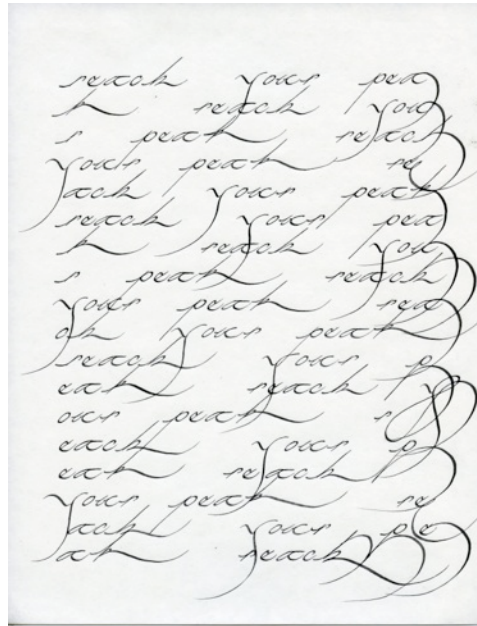 reach your pea
k reach you
r peak reach
your peak re
ach your peak
reach your pea
k reach you
r peak reach
your peak rea
ch your peak
reach your p
eak reach y
our peak r
each your p
eak reach
your peak re
ach your pe
ak reach